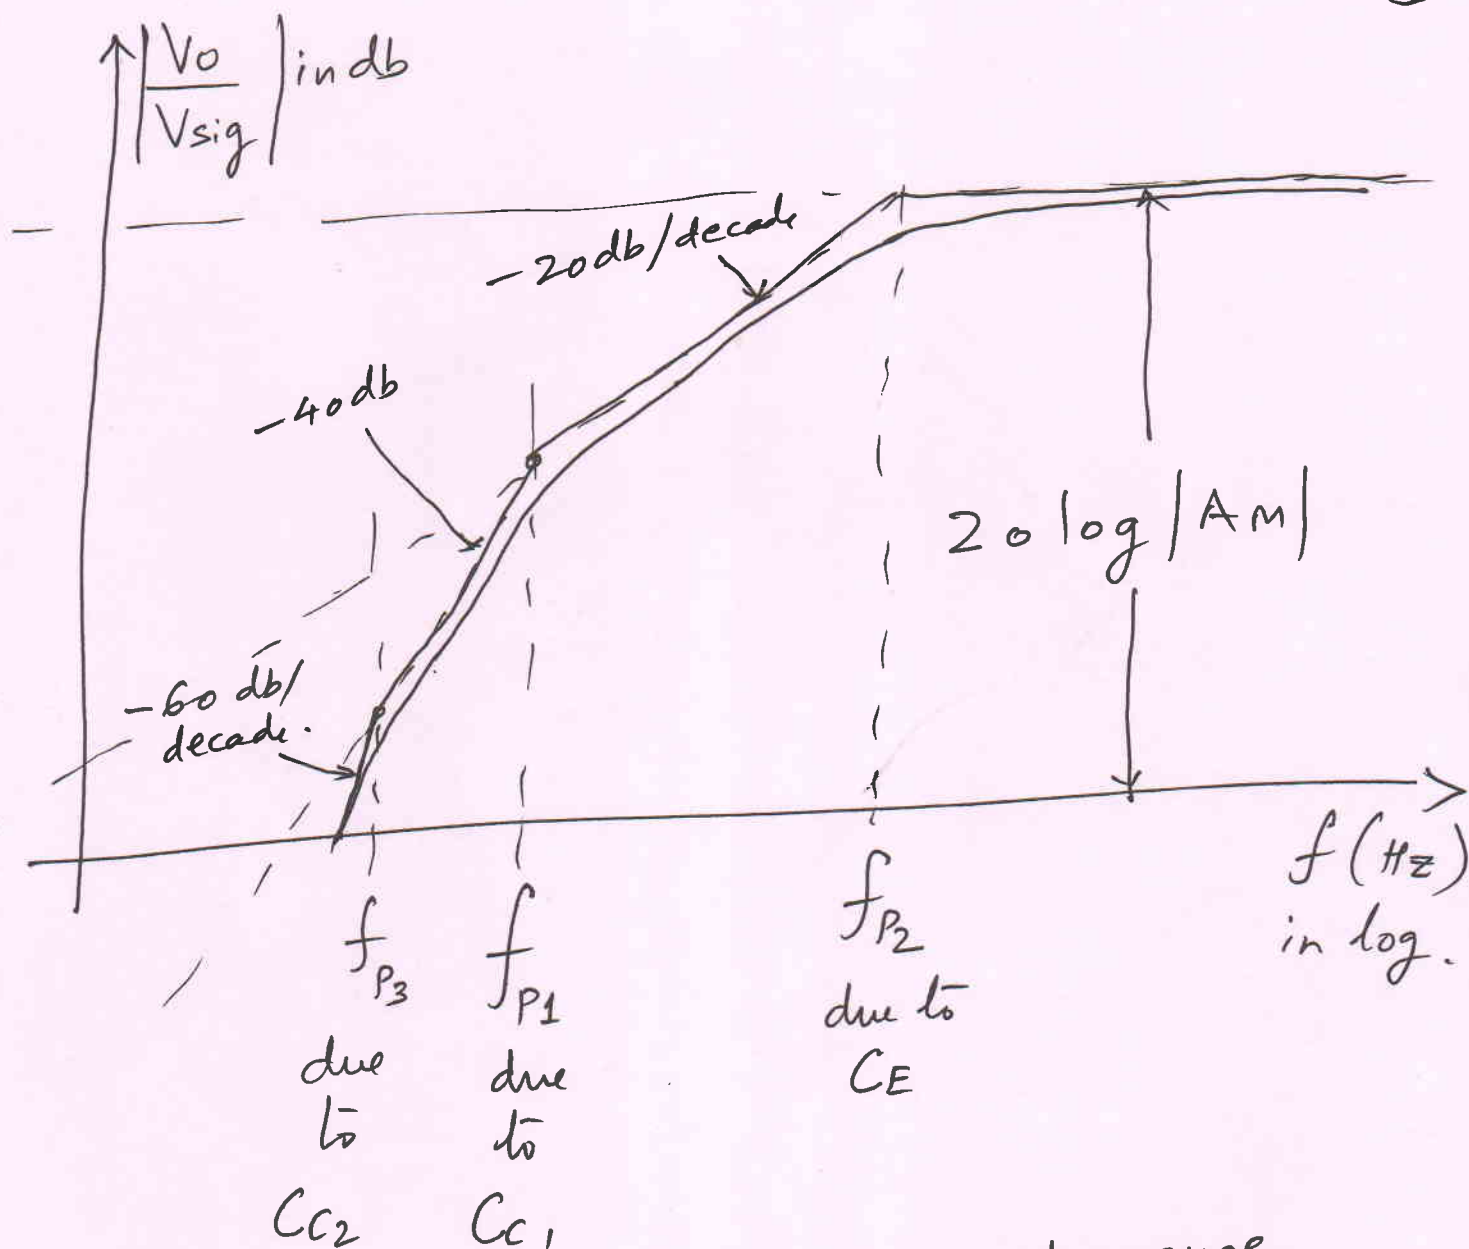 |Vo / Vsig| in db
-20db/decade
-40db
20 log |AM|
-60 db/
decade.
f (Hz)
in log.
fP3
due
to
CC2
fP1
due
to
CC1
fP2
due to
CE